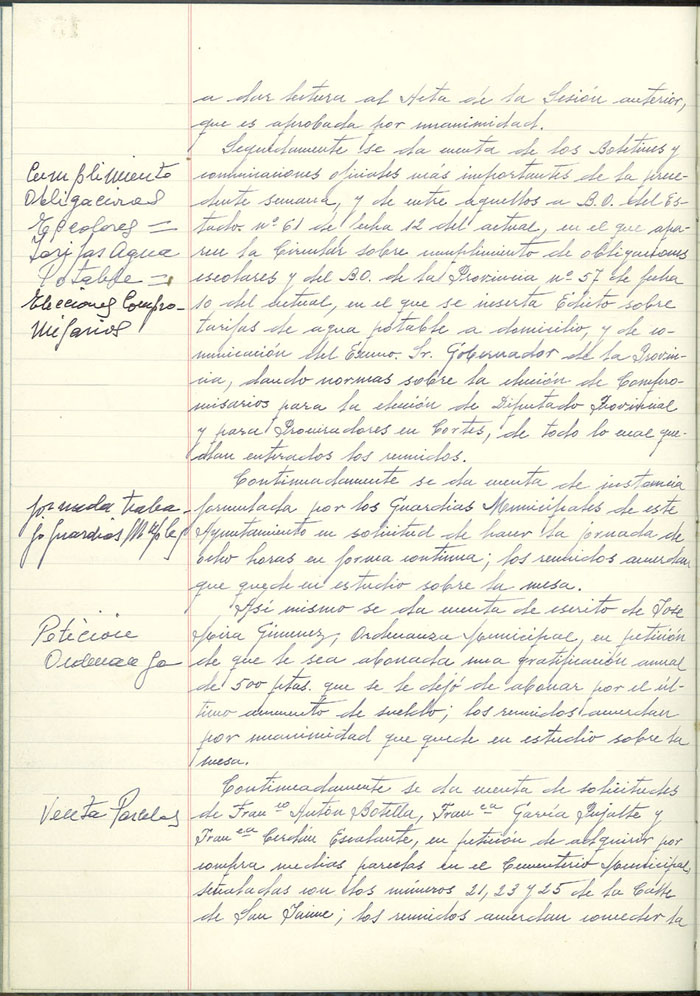 a dar lectura al Acta de la Sesión anterior,
que es aprobada por unanimidad.
Cumplimiento
Obligaciones
Escolares =
Tarifas Agua
Potable =
Elecciones Compro-
misarios
Seguidamente se da cuenta de los Boletines y
comunicaciones oficiales más importantes de la prece-
dente semana, y de entre aquellos a B.O. del Es-
tado nº 61 de fecha 12 del actual, en el que apa-
rece la Circular sobre cumplimiento de obligaciones
escolares y del B.O. de la Provincia nº 57 de fecha
10 del actual, en el que se inserta Edicto sobre
tarifas de agua potable a domicilio, y de co-
municación del Excmo. Sr. Gobernador de la Provin-
cia, dando normas sobre la elección de Compro-
misarios para la elección de Diputado Provincial
y para Procuradores en Cortes, de todo lo cual que-
dan enterados los reunidos.
Jornada traba-
jo guardias Mcples
Continuadamente se da cuenta de instancia
formulada por los Guardias Municipales de este
Ayuntamiento en solicitud de hacer la jornada de
ocho horas en forma continua; los reunidos acuerdan
que quede en estudio sobre la mesa.
Petición
Ordenanza
Así mismo se da cuenta de escrito de José
Mira Gimenez, Ordenanza Municipal, en petición
de que le sea abonada una gratificación anual
de 500 ptas. que se le dejó de abonar por el úl-
timo aumento de sueldo; los reunidos acuerdan
por unanimidad que quede en estudio sobre la
mesa.
Venta Parcelas
Continuadamente se da cuenta de solicitudes
de Fran co Antón Botella, Fran ca García Pujalte y
Fran ca Cerdán Escalante, en petición de adquirir por
compra medias parcelas en el Cementerio Municipal,
señaladas con los números 21, 23 y 25 de la Calle
de San Jaime; los reunidos acuerdan conceder la